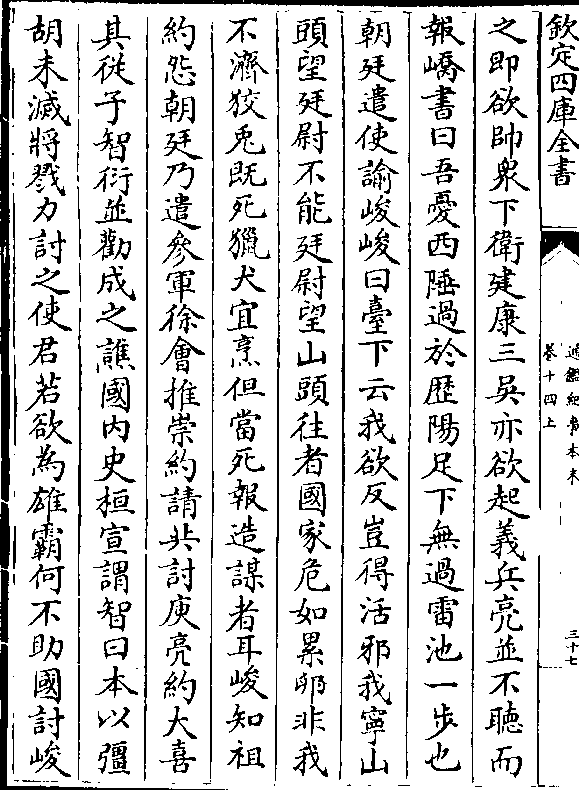 欽定四庫全書
通鑑紀事本末
卷十四上
三十七
之即欲帥衆下衛建康三吳亦欲起義兵亮並不聽而
報嶠書曰吾憂西陲過於歴陽足下無過雷池一步也
朝廷遣使諭峻峻曰臺下云我欲反豈得活邪我寧山
頭望廷尉不能廷尉望山頭往者國家危如累卵非我
不濟狡兎既死獵犬宜烹但當死報造謀者耳峻知祖
約怨朝廷乃遣參軍徐會推崇約請共討庾亮約大喜
其從子智衍並勸成之譙國内史桓宣謂智曰本以彊
胡未滅將戮力討之使君若欲為雄霸何不助國討峻